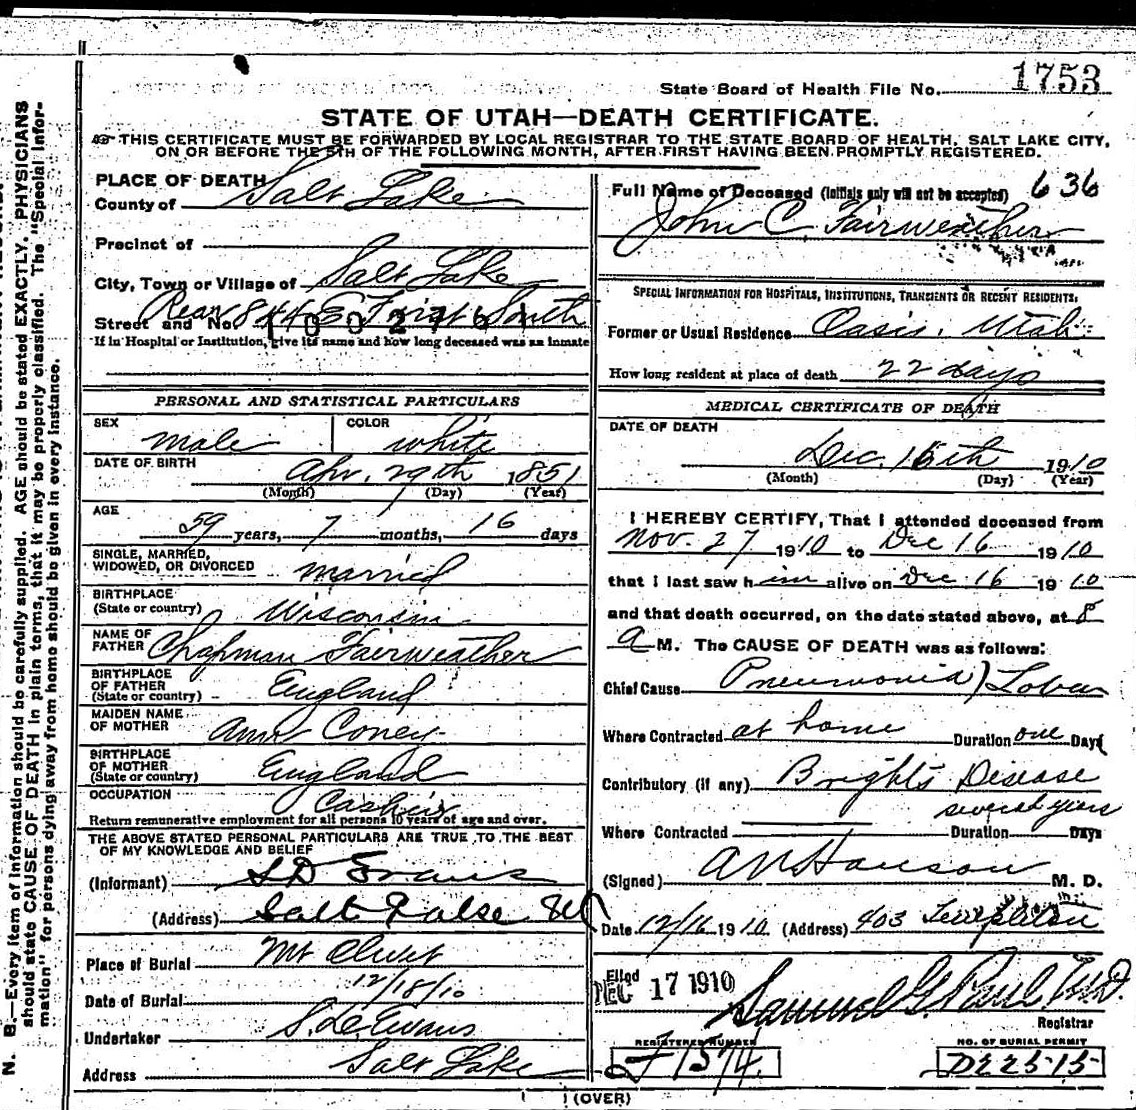 State Board of Health File No. 1753
STATE OF UTAH—DEATH CERTIFICATE.
THIS CERTIFICATE MUST BE FORWARDED BY LOCAL REGISTRAR TO THE STATE BOARD OF HEALTH, SALT LAKE CITY,
ON OR BEFORE THE 5TH OF THE FOLLOWING MONTH, AFTER FIRST HAVING BEEN PROMPTLY REGISTERED.
PLACE OF DEATH
County of Salt Lake
Precinct of
City, Town or Village of Salt Lake
Street and No. Rear 844 E First South
1002761
If in Hospital or Institution, give its name and how long deceased was an inmate
PERSONAL AND STATISTICAL PARTICULARS
SEX male COLOR white
DATE OF BIRTH Apr. 29th 1851
(Month) (Day) (Year)
AGE 59 years, 7 months, 16 days
SINGLE, MARRIED,
WIDOWED, OR DIVORCED married
BIRTHPLACE
(State or country) Wisconsin
NAME OF
FATHER Chapman Fairweather
BIRTHPLACE
OF FATHER
(State or country) England
MAIDEN NAME
OF MOTHER Ann Coney
BIRTHPLACE
OF MOTHER
(State or country) England
OCCUPATION Cashier
Return remunerative employment for all persons 10 years of age and over.
THE ABOVE STATED PERSONAL PARTICULARS ARE TRUE TO THE BEST
OF MY KNOWLEDGE AND BELIEF
(Informant) S D Evans
(Address) Salt Lake
Place of Burial Mt Olivet
Date of Burial 12/18/10
Undertaker S. D. Evans
Address Salt Lake
Full Name of Deceased (Initials only will not be accepted) 636
John C. Fairweather
SPECIAL INFORMATION FOR HOSPITALS, INSTITUTIONS, TRANSIENTS OR RECENT RESIDENTS:
Former or Usual Residence Oasis, Utah
How long resident at place of death 22 days
MEDICAL CERTIFICATE OF DEATH
DATE OF DEATH
Dec. 16th 1910
(Month) (Day) (Year)
I HEREBY CERTIFY, That I attended deceased from
Nov. 27 1910 to Dec 16 1910
that I last saw him alive on Dec 16 1910
and that death occurred, on the date stated above, at 8
a M. The CAUSE OF DEATH was as follows:
Chief Cause Pneumonia) Lobar
Where Contracted at home Duration one Day
Contributory (if any) Brights Disease
several years
Where Contracted Duration Days
(Signed) A N Hanson M. D.
Date 12/16 1910 (Address) 403 Templeton
Filed DEC 17 1910
Samuel G. Paul, M.D.
Registrar
REGISTERED NUMBER
F 1574
NO. OF BURIAL PERMIT
D22515
(OVER)
N. B.—Every item of information should be carefully supplied. AGE should be stated EXACTLY. PHYSICIANS
should state CAUSE OF DEATH in plain terms, that it may be properly classified. The "Special Infor-
mation" for persons dying away from home should be given in every instance.